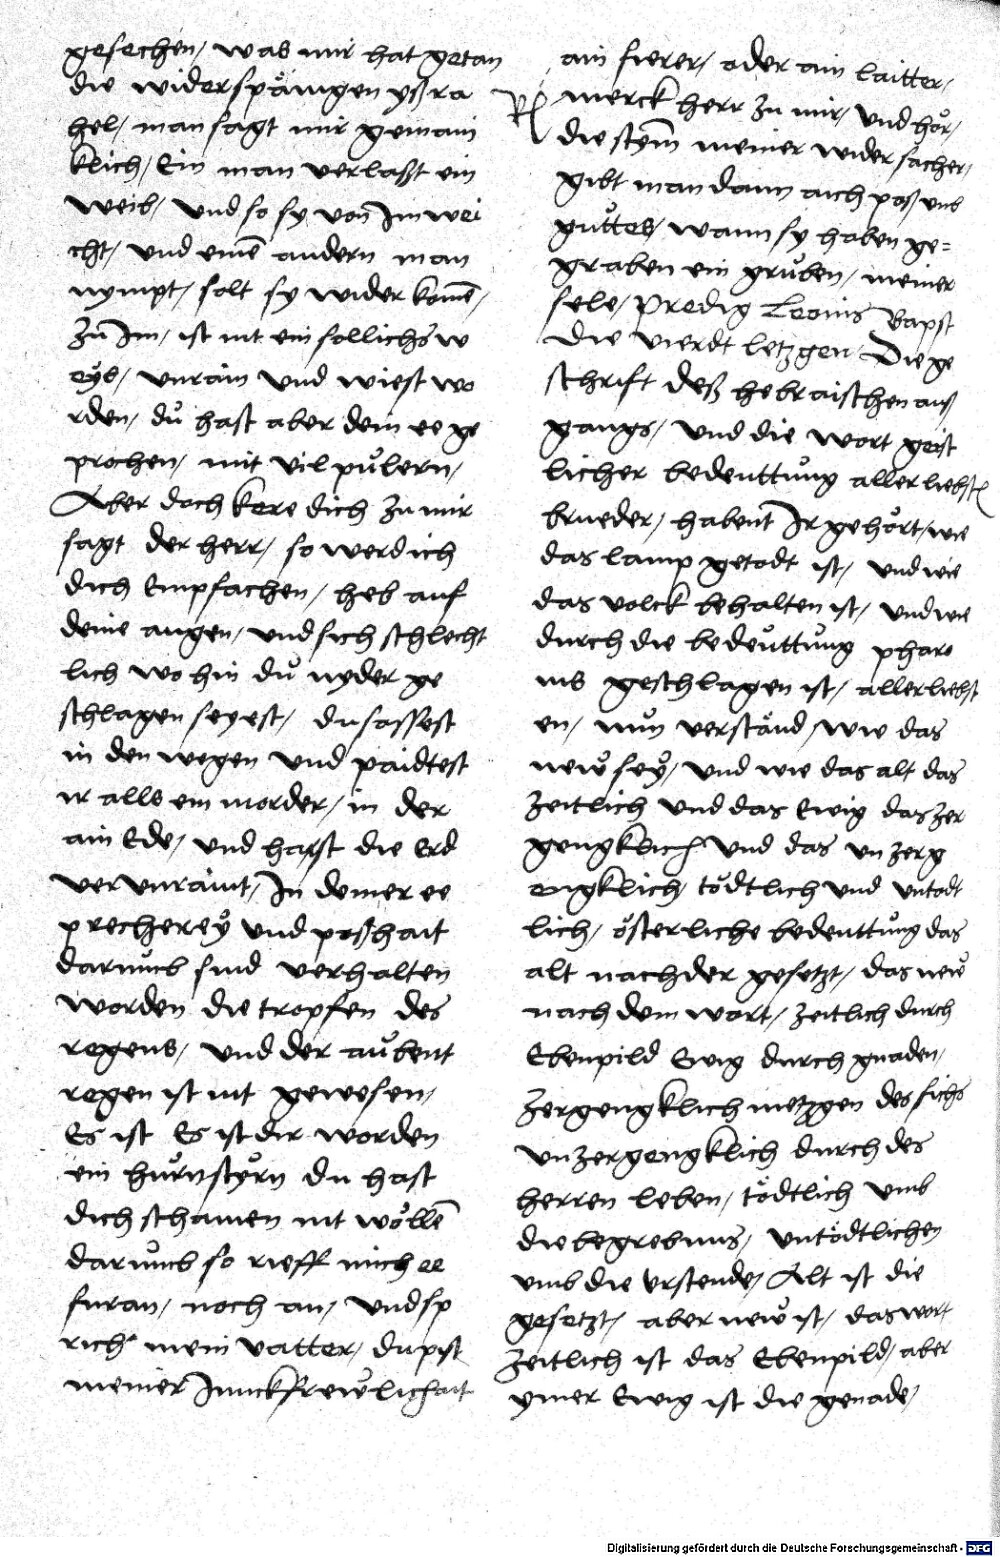 gesechen, was mir hat getan
die widerspänigen yßra
hel, man sagt mir gemain
klich, Ein man verlaßt ein
weib, und so sy von Im wei
cht, und einē andern man
nympt, solt sy wider komē,
zu Im, ist nit ein sollichs w
eyb, unrain und wiest wo
rden, du hast aber dein ee ge
prochen, mit vil pulern,
Aber doch kere dich zu mir
sagt der herr, so werd ich
dich Empfachen, heb auf
deine augen, und sich schlecht
lich wo hin du nyder ge
schlagen seyest, du sassest
in den wegen und paidtest
ir alls ein morder, in der
ain Ede, und hast die Erd
verunraint, In deiner ee
precherey und poßhait
darumb sind verhalten
worden die tropfen des
regens, und der aubent
regen ist nit gewesen,
Es ist Es ist dir worden
ein hurnstyrn du hast
dich schamen nit wöllē
darumb so rieff mich ee
furan, noch an, und sp
rich mein vatter, du pist
meiner Junckfrewlichait
ain fierer, oder ain laitter,
R merck herr zu mir, und hör,
die stym meiner widersacher,
gibt man dann auch poß umb
guttes, wann sy haben ge=
graben ein gruben, meiner
sele, Predig Leonis Bapst
Die vierdt letzgen, Die ge
schrift deß hebraischen auß
gangs, und die wort geist
licher bedeuttung aller liebstē
brueder, habent Ir gehört, wie
das lamp getodt ist, und wie
das volck behalten ist, und wie
durch die bedeuttung pharo
nis geschlagen ist, allerliebst
en, nun verständ, wie das
new sey, und wie das alt das
zeitlich und das Ewig das zer
gengklich und das un zerg
engklich, tödtlich und untodt
lich, österliche bedeuttung das
alt nach der gesetzt, das new
nach dem wort, zeitlich durch
Ebenpild Ewig durch gnaden,
zergengklich metzgen des fichs
unzergengklich durch des
herren leben, tödtlich umb
die begrebnus, untödtlichen
umb die Urstende, Alt ist die
gesetzt, aber new ist, das wort,
zeitlich ist das Ebenpild, aber
ymer Ewig ist die genade,
Digitalisierung gefördert durch die Deutsche Forschungsgemeinschaft - DFG